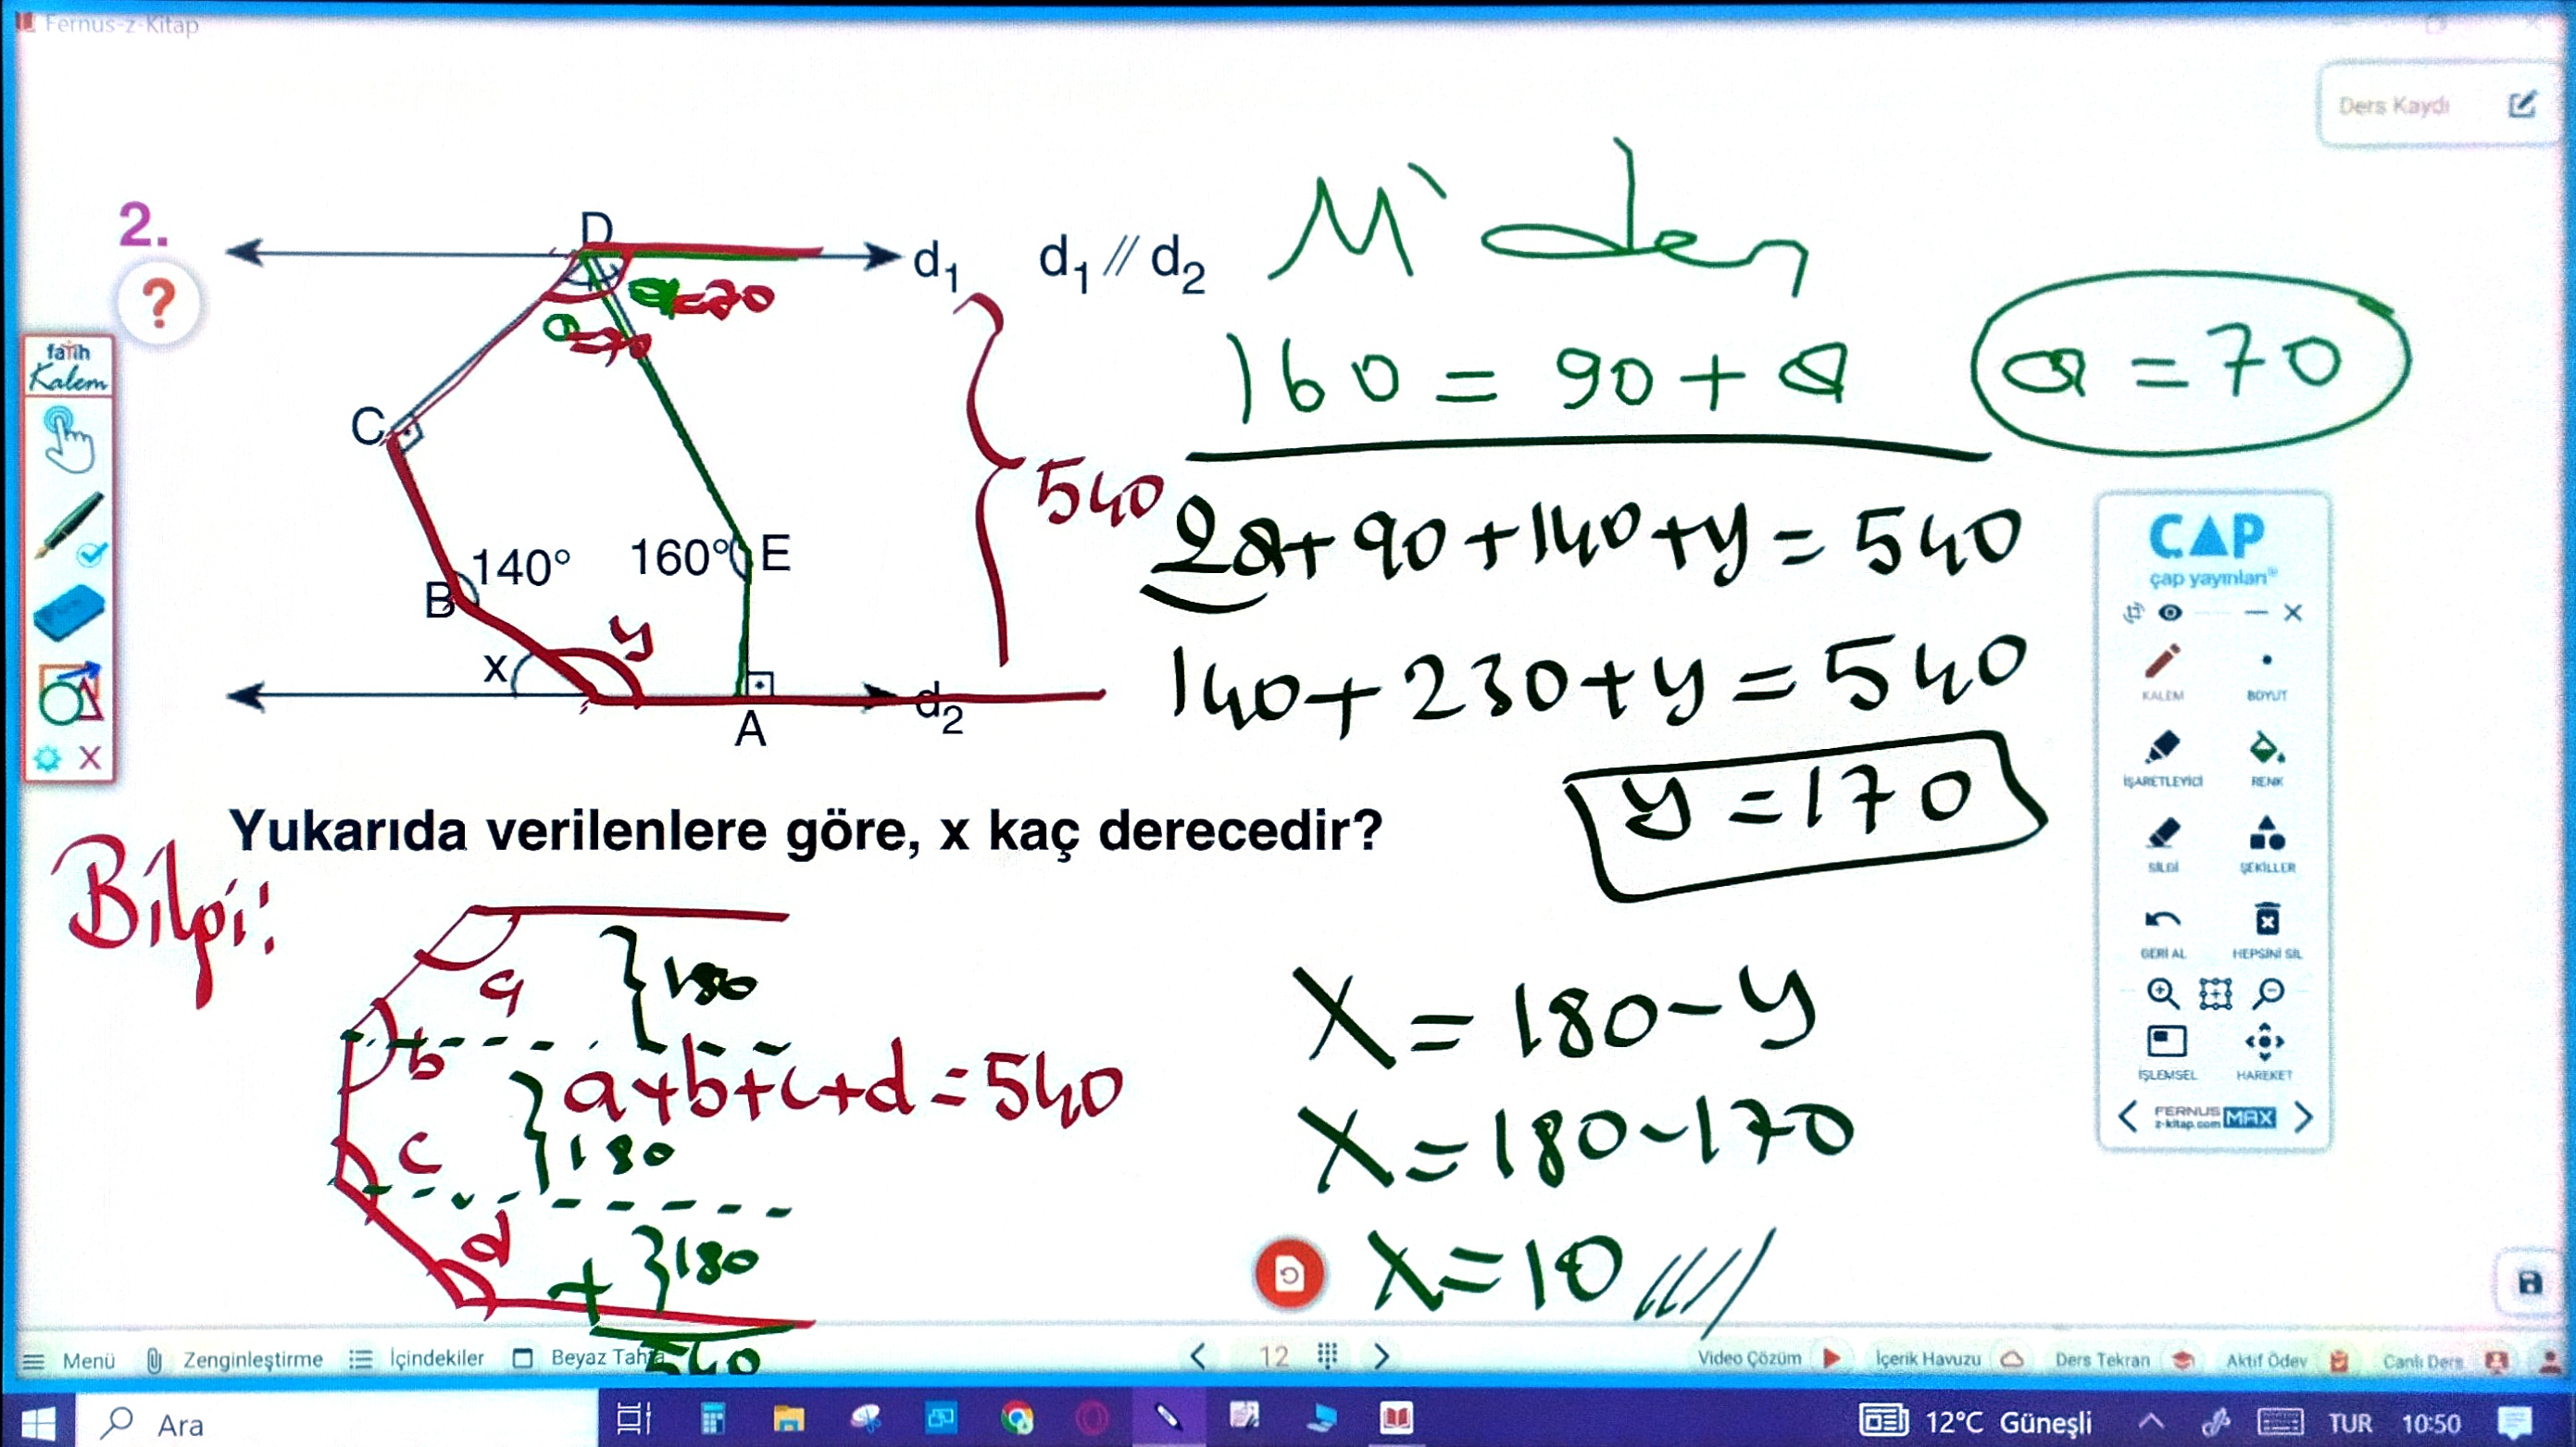 Fernus-z-Kitap
Ders Kaydı
2.
?
D
d1
d1 // d2
M'den
a=70
a=70
160 = 90 + a
a = 70
fatih
Kalem
C
540
2a+90+140+y=540
140°
160°
E
B
y
x
A
d2
140+230+y=540
y=170
Yukarıda verilenlere göre, x kaç derecedir?
Bilgi:
a
180
b
a+b+c+d=540
c
180
d
+ 180
540
X=180-y
X=180-170
X=10
ÇAP
çap yayınları®
KALEM
BOYUT
İŞARETLEYİCİ
RENK
SİLGİ
ŞEKİLLER
GERİ AL
HEPSİNİ SİL
İŞLEMSEL
HAREKET
FERNUS
z-kitap.com MAX
Menü
Zenginleştirme
İçindekiler
Beyaz Tahta
12
Video Çözüm
İçerik Havuzu
Ders Tekran
Aktif Ödev
Canlı Ders
Ara
12°C Güneşli
TUR
10:50